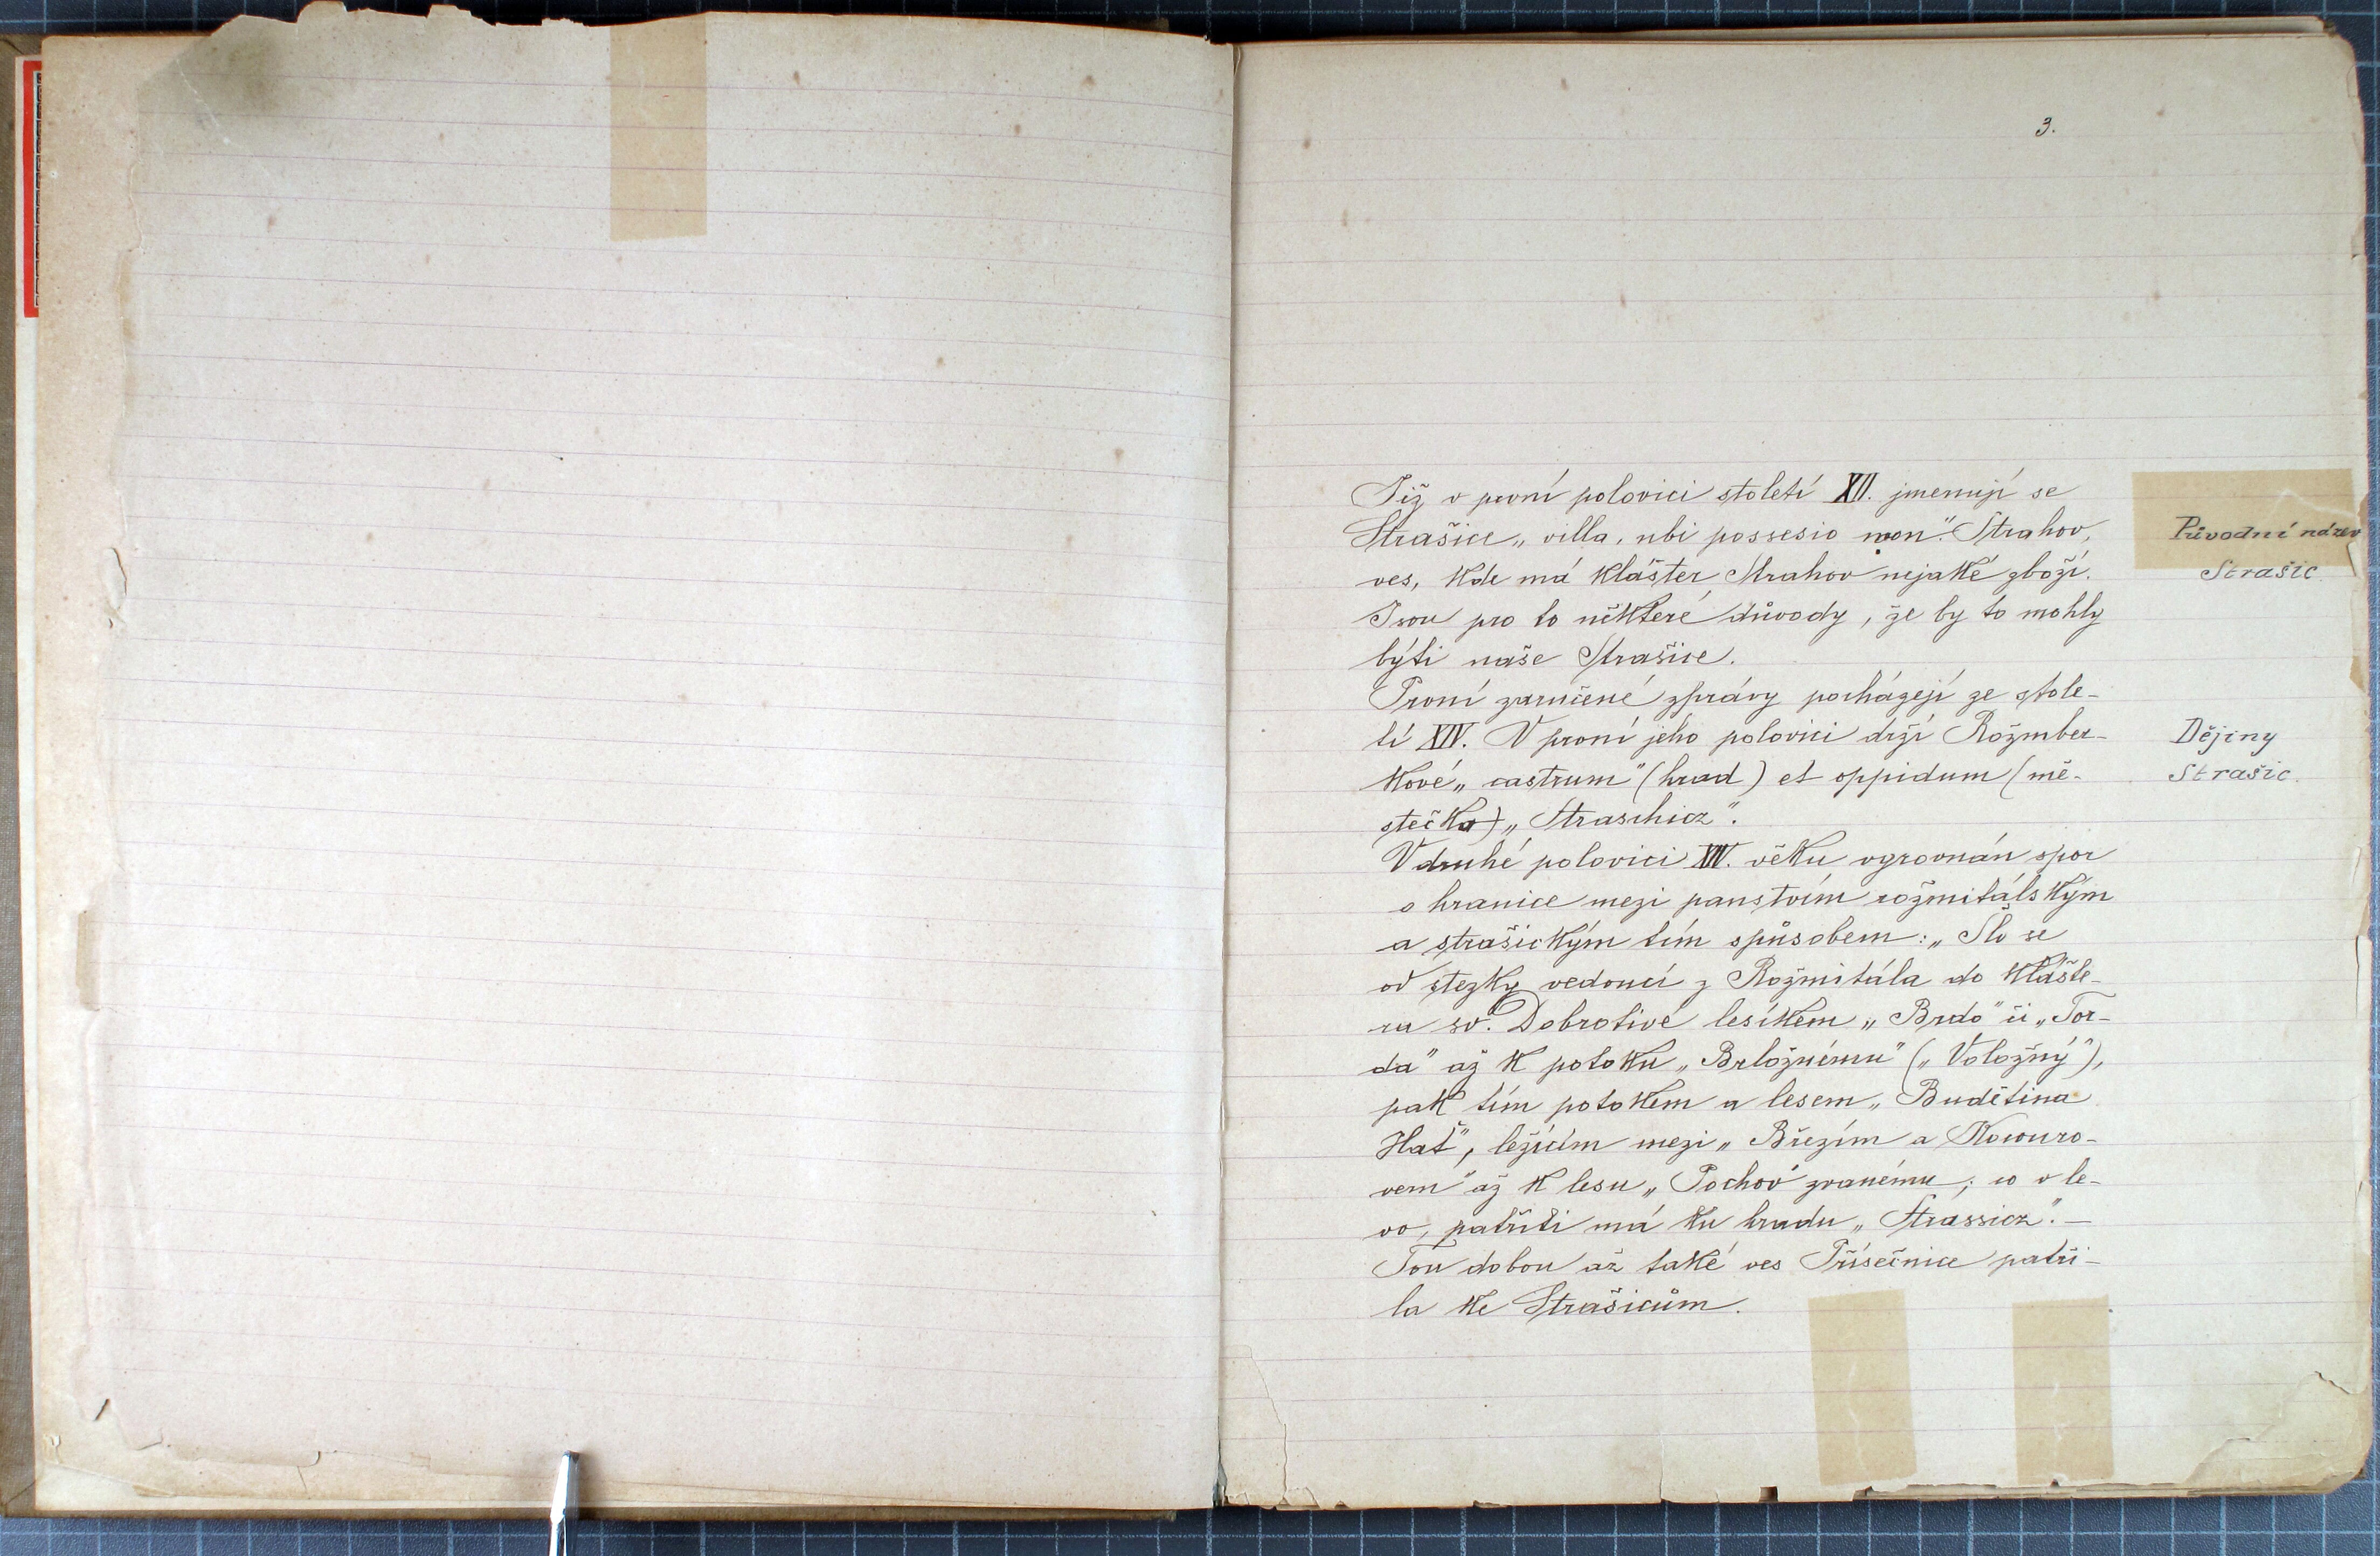 3.
Již v první polovici století XII. jmenují se
Strašice „villa, ubi possesio mon." Strahov,
ves, kde má klášter Strahov nejaké zboží.
Jsou pro to některé důvody, že by to mohly
býti naše Strašice.
První zaručené zprávy pocházejí ze stole-
tí XIV. V první jeho polovici drží Rožmber-
kové „castrum" (hrad) et oppidum (mě-
stečko) „Straschicz".
V druhé polovici XIV. věku vyrovnán spor
o hranice mezi panstvím rožmitálským
a strašickým tím spůsobem: „Šlo se
od stezky vedoucí z Rožmitála do klášte-
ra sv. Dobrotivé lesíkem „Brdo" či „Tor-
da" až k potoku „Brložnému" („Voložný"),
pak tím potokem a lesem „Budětina
Hať", ležícím mezi „Březím a Kocuro-
vem" až k lesu „Pochov" zvanému; co v le-
vo, patřiti má ku hradu „Strassicz". —
Tou dobou až také ves Příšečnice patři-
la ke Strašicům.
Původní název
Strašic
Dějiny
Strašic.